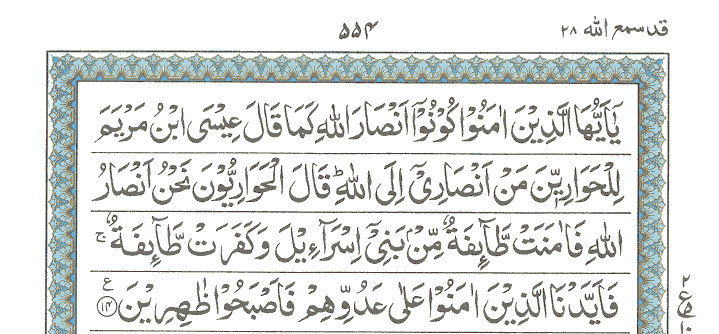 قد سمع الله ۲۸
۵۵۴
يٰۤاَيُّهَا الَّذِيْنَ اٰمَنُوْا كُوْنُوْۤا اَنْصَارَ اللّٰهِ كَمَا قَالَ عِيْسَى ابْنُ مَرْيَمَ
لِلْحَوَارِيّٖنَ مَنْ اَنْصَارِيْۤ اِلَى اللّٰهِ ؕ قَالَ الْحَوَارِيُّوْنَ نَحْنُ اَنْصَارُ
اللّٰهِ فَاٰمَنَتْ طَّآئِفَةٌ مِّنْۢ بَنِيْۤ اِسْرَآءِيْلَ وَ كَفَرَتْ طَّآئِفَةٌ ۚ
فَاَيَّدْنَا الَّذِيْنَ اٰمَنُوْا عَلٰى عَدُوِّهِمْ فَاَصْبَحُوْا ظٰهِرِيْنَ ۱۴ ع
۲
ع